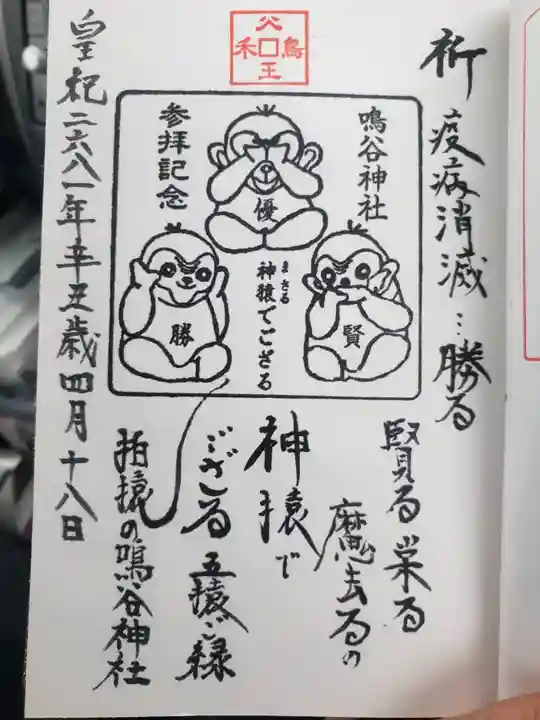 祈 疫病消滅…勝る
賢る 栄る
魔去るの
神猿で
ござる 五猿ご縁
拍猿の鳴谷神社
皇紀二六八一年辛丑歳四月十八日
鳴谷神社
参拝記念
優
勝
賢
神猿でござる
まさる